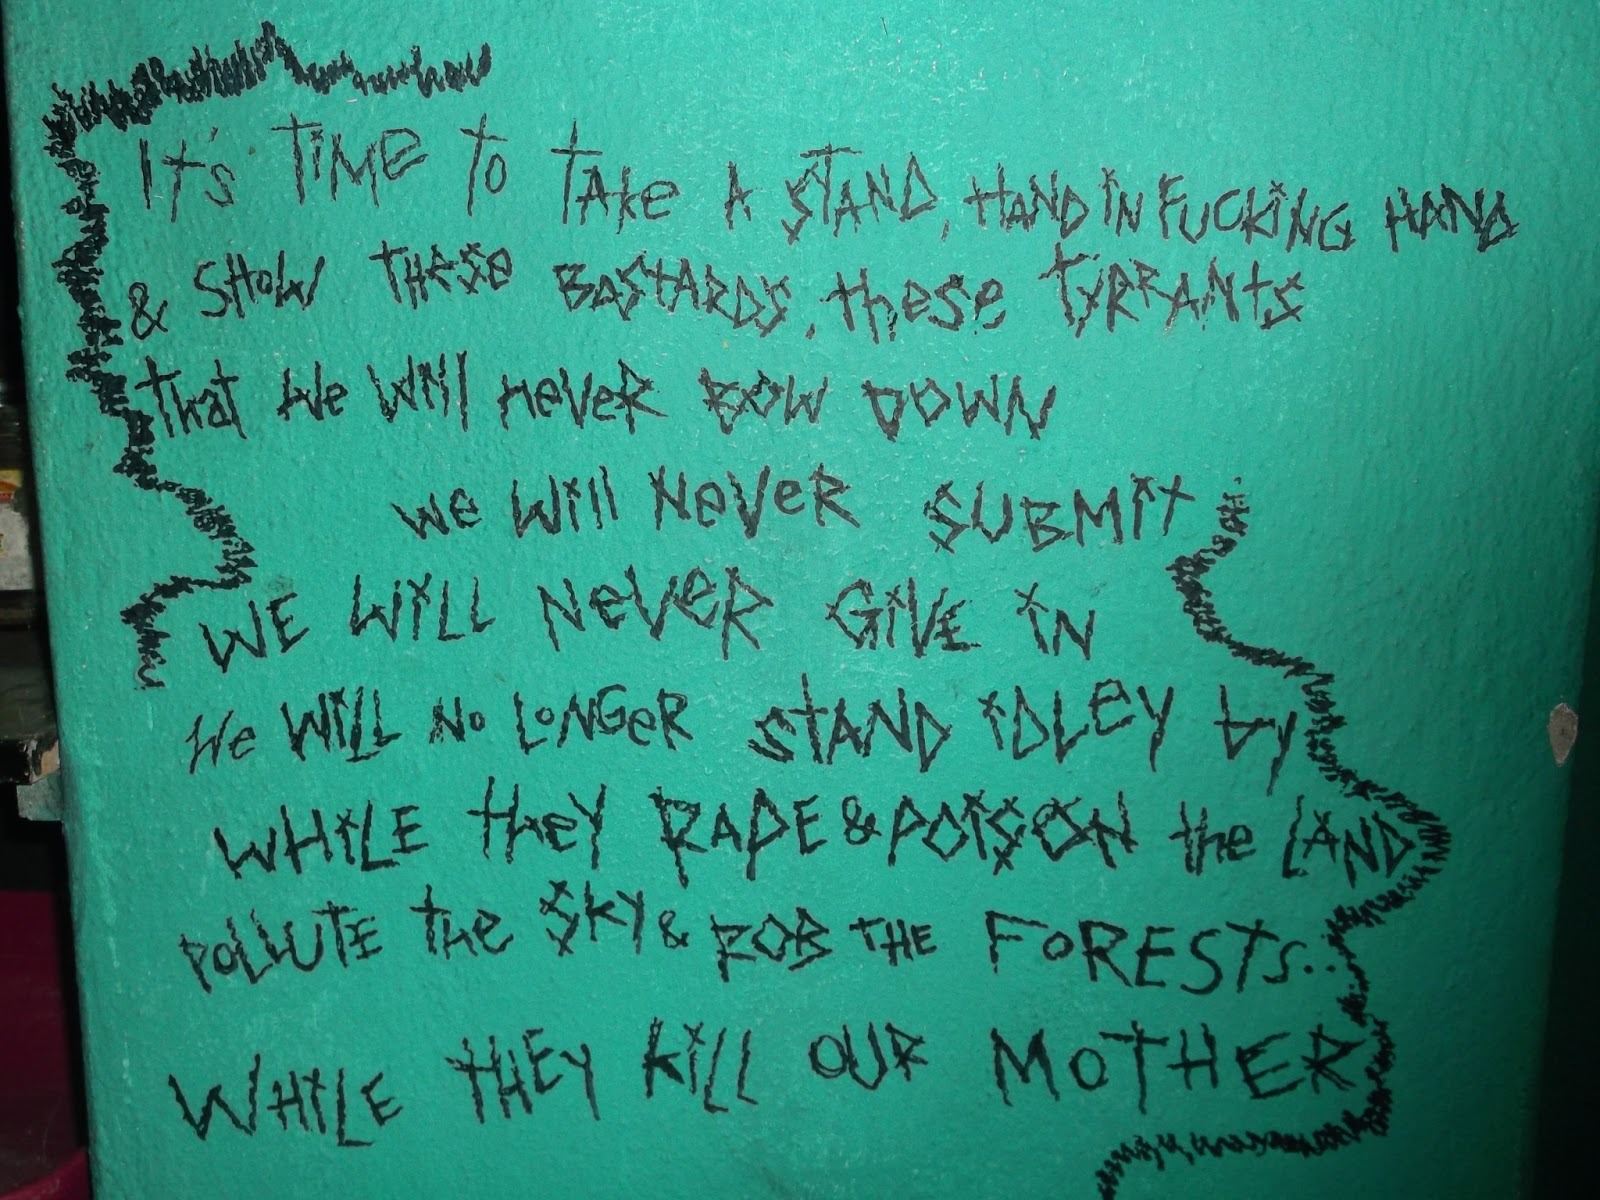 It's TIME TO TAKE A STAND, HAND IN FUCKING HAND
& SHOW THESE BASTARDS, these TYRRANTS
that We Will never BOW DOWN
we will NeVeR SUBMIT
WE WILL NEVER GIVE IN
We WILL NO LONGER STAND IDLEY by
WHILE they RAPE & POISON the LAND
POLLUTE THE SKY & ROB THE FORESTS..
WHILE THEY KILL OUR MOTHER